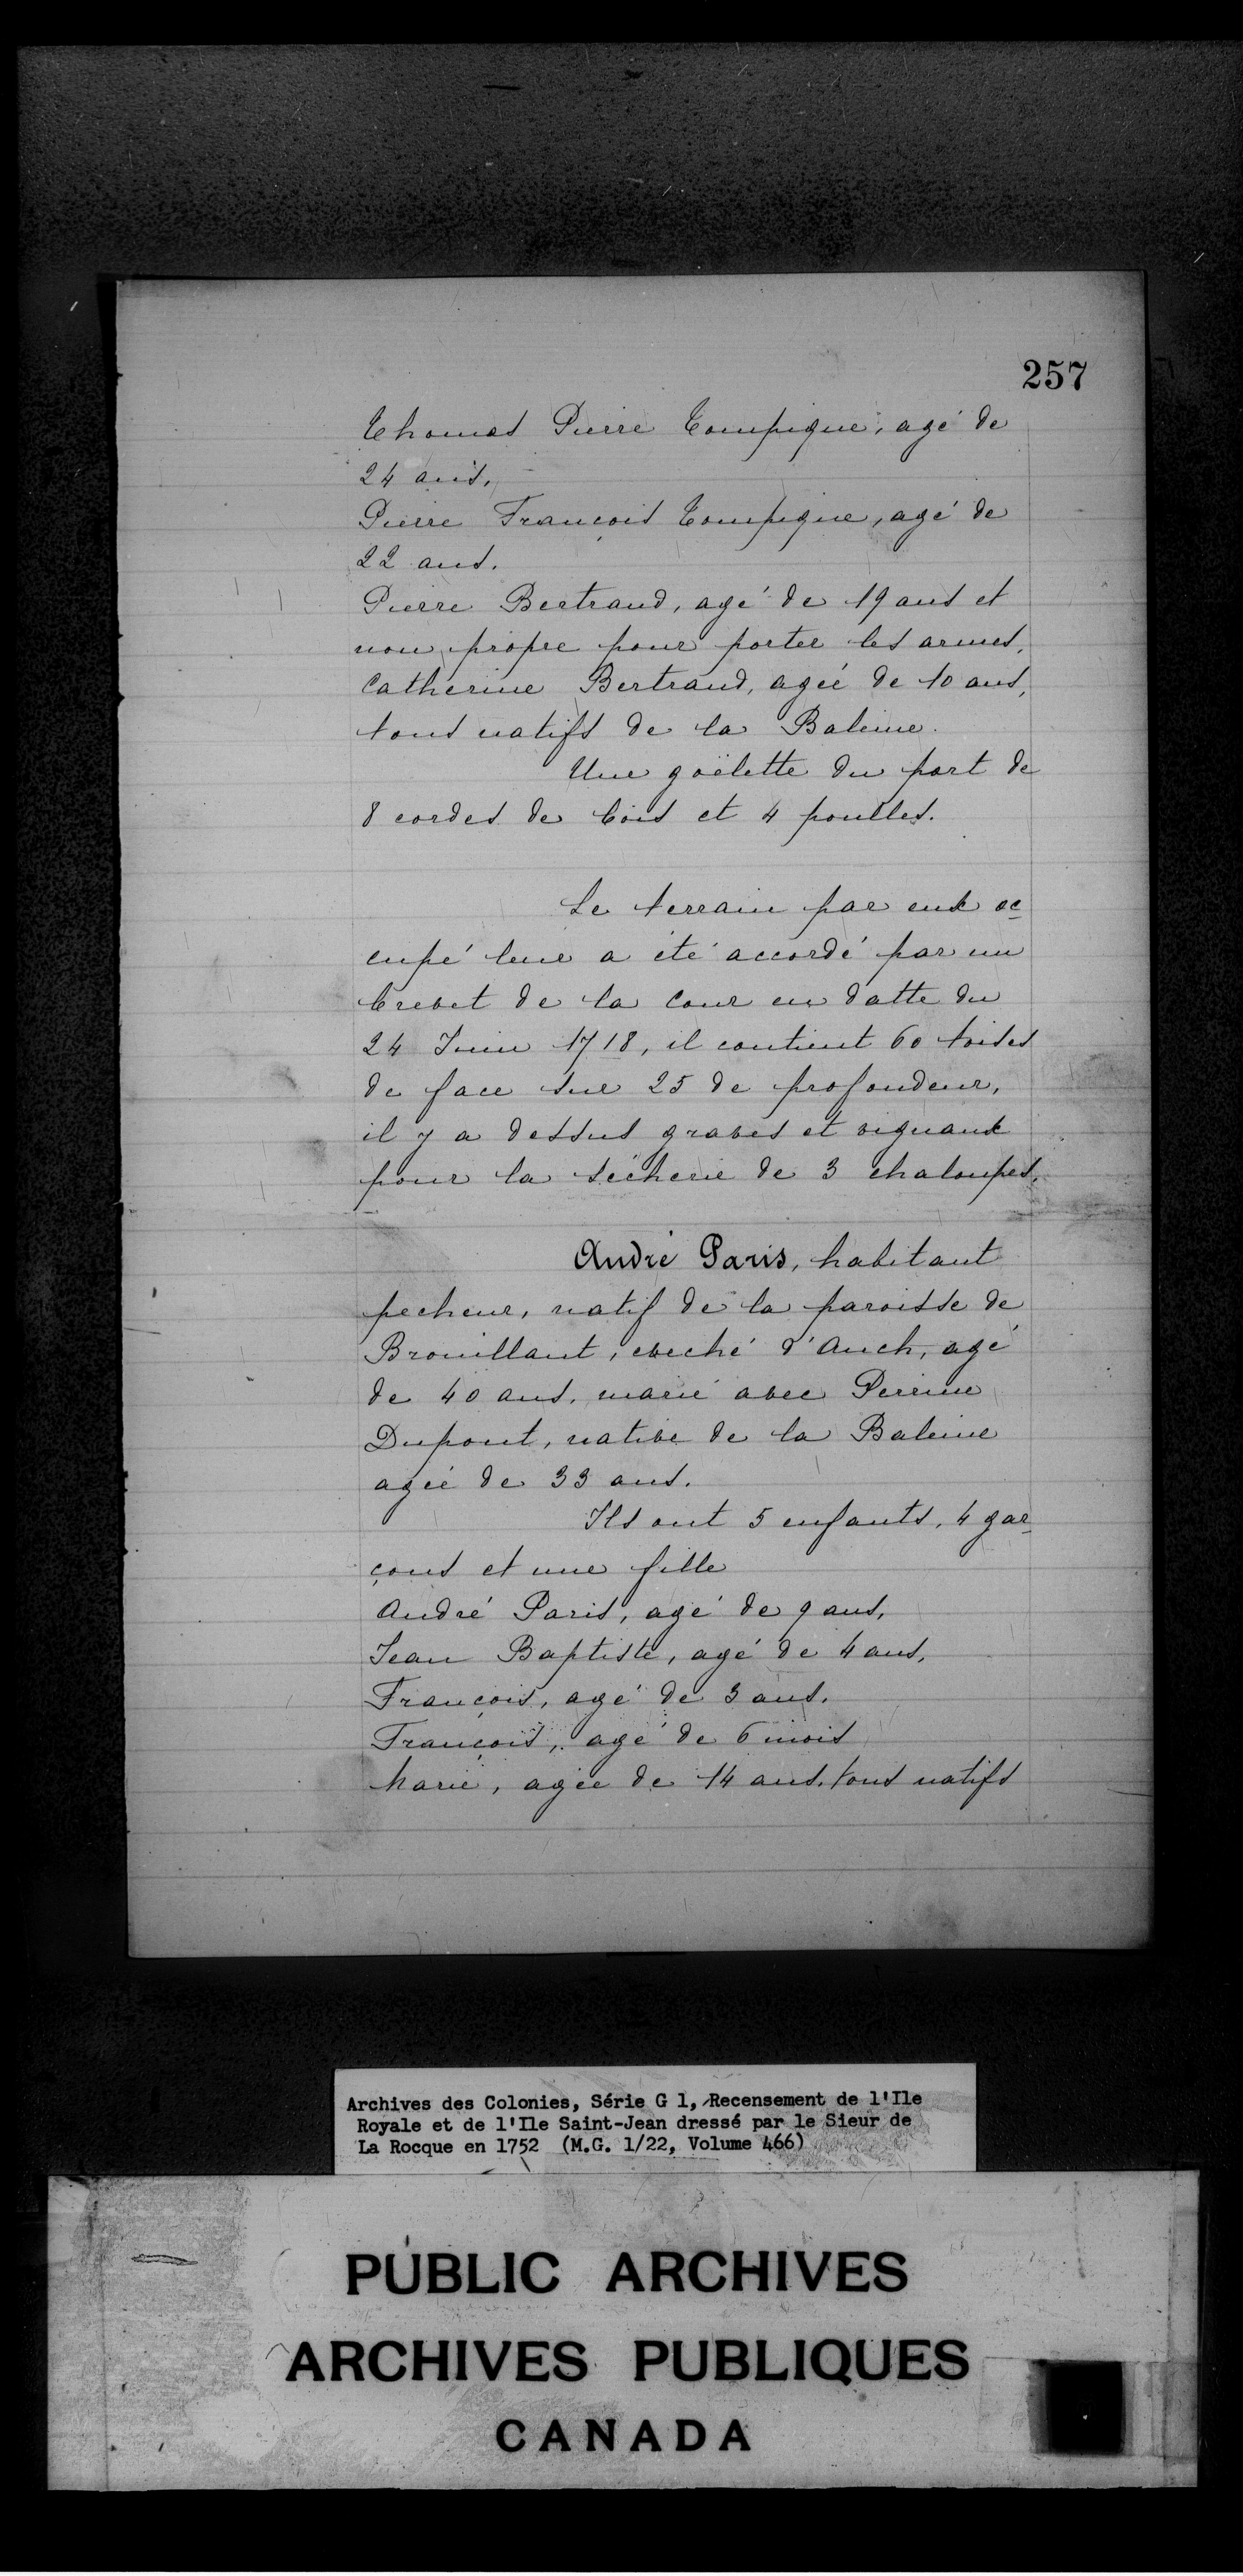 257
Thomas Pierre Tompique, agé de
24 ans,
Pierre François Tompique, agé de
22 ans.
Pierre Bertrand, agé de 19 ans et
non propre pour porter les armes,
Catherine Bertrand, agée de 10 ans,
tous natifs de la Baleine.
Une goëlette du port de
8 cordes de bois et 4 poulles.
Le terrain par eux oc
cupé leur a été accordé par un
brevet de la Cour en datte du
24 Juin 1718, il contient 60 toises
de face sur 25 de profondeur,
il y a dessus graves et vignaux
pour la sécherie de 3 chaloupes.
André Paris, habitant
pecheur, natif de la paroisse de
Brouillant, eveché d'Auch, agé
de 40 ans, marié avec Perrine
Dupont, native de la Baleine
agée de 33 ans.
Ils ont 5 enfants, 4 gar
çons et une fille
André Paris, agé de 9 ans,
Jean Baptiste, agé de 4 ans,
François, agé de 3 ans.
François, agé de 6 mois
Marie, agée de 14 ans, tous natifs
Archives des Colonies, Série G 1, Recensement de l'Ile
Royale et de l'Ile Saint-Jean dressé par le Sieur de
La Rocque en 1752 (M.G. 1/22, Volume 466)
PUBLIC ARCHIVES
ARCHIVES PUBLIQUES
CANADA